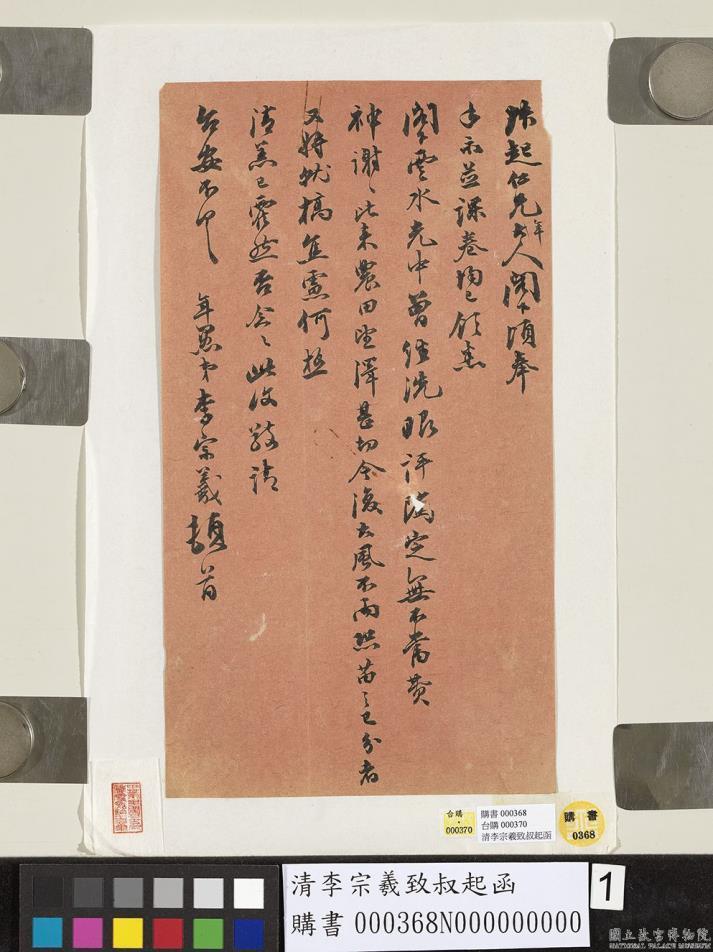 叔起仁兄大人年閣下頃奉
手示並課卷均已領悉
閣下雲水光中曾經洗眼評隲定無不當費
神謝謝比來農田望澤甚切今復大風不雨然苗之已分者
又將就槁焦慮何極
清恙已霍然否念念此復敬請
台安不一
年愚弟李宗羲頓首
台購
000370
購書 000368
台購 000370
清李宗羲致叔起函
購書
0368
清李宗羲致叔起函
購書 000368N000000000
1
國立故宮博物院
NATIONAL PALACE MUSEUM